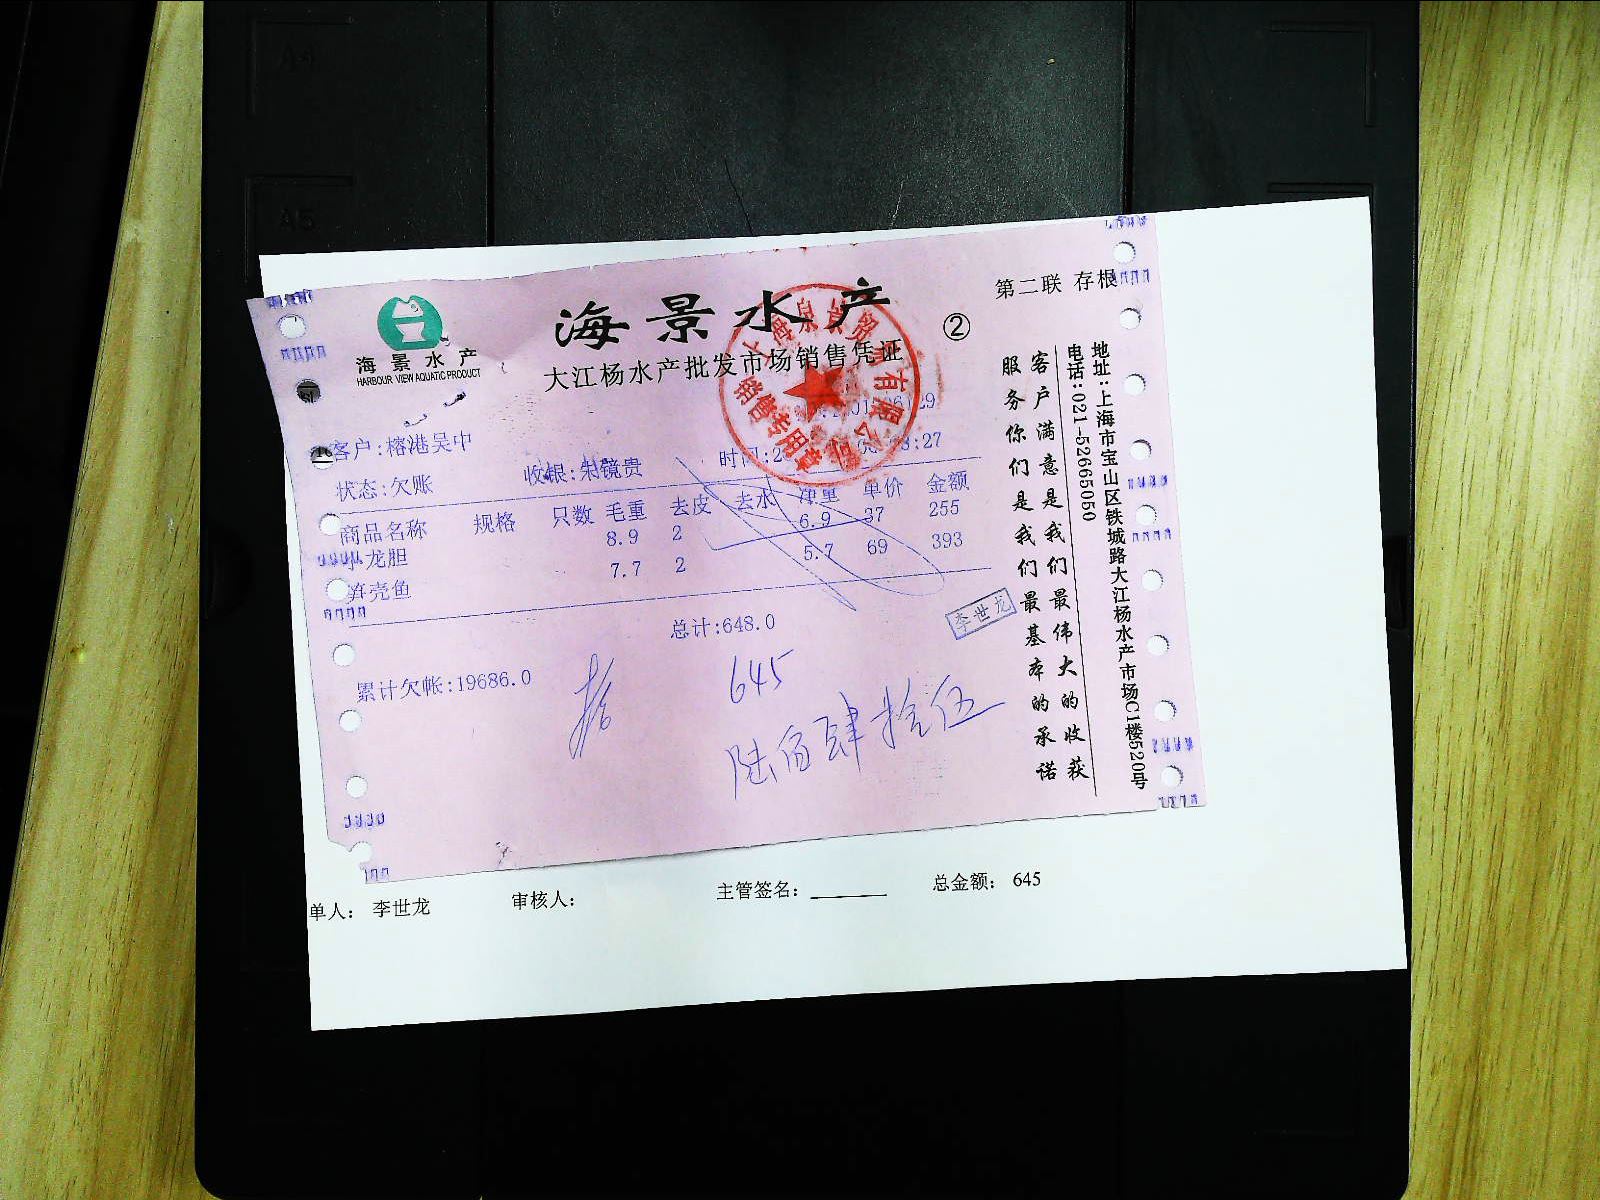 A4
A5
第二联 存根
海景水产
②
海景水产
HARBOUR VIEW AQUATIC PRODUCT
大江杨水产批发市场销售凭证
销售专用章
客户:榕港吴中
状态:欠账
收银:朱镜贵
时间:2 :27
商品名称 规格 只数 毛重 去皮 去水 净重 单价 金额
龙胆 8.9 2 6.9 37 255
笋壳鱼 7.7 2 5.7 69 393
总计:648.0
李世龙
累计欠帐:19686.0
645
陆佰肆拾伍
客户满意是我们最伟大的收获
服务你们是我们最基本的承诺
地址:上海市宝山区铁城路大江杨水产市场C1楼520号
电话:021-52665050
单人: 李世龙 审核人: 主管签名: 总金额: 645